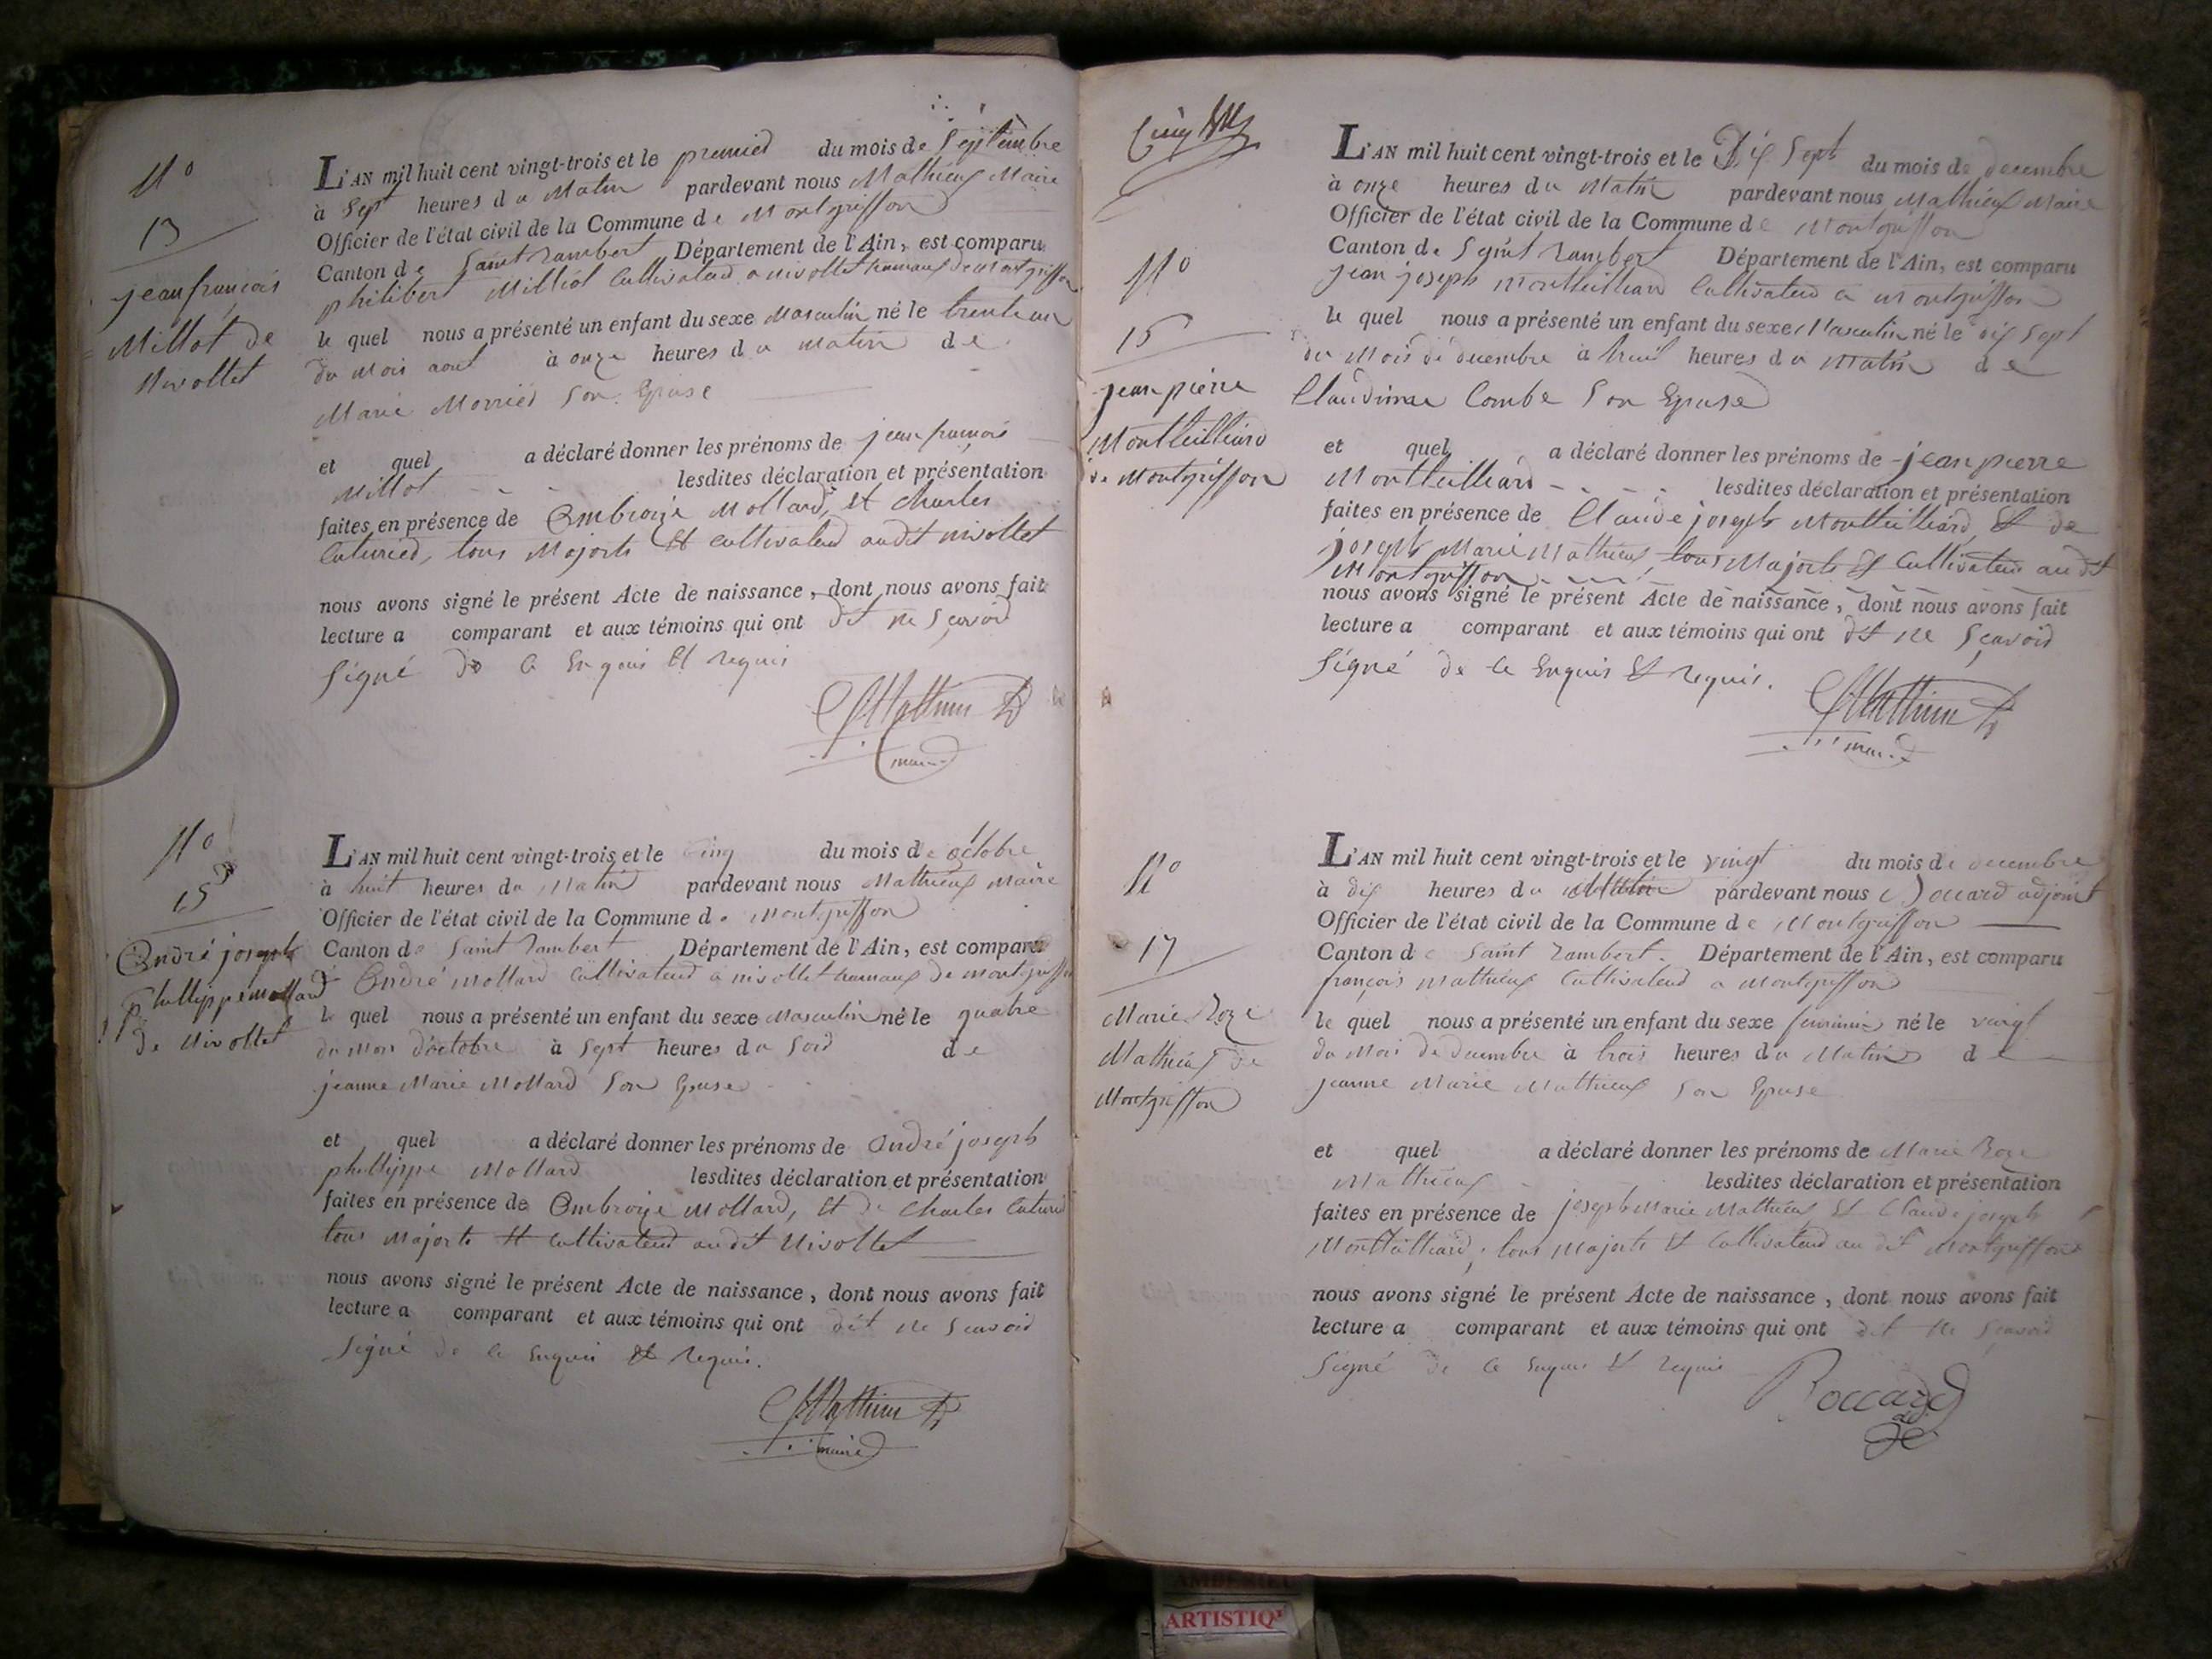 N°
13
jean françois
Millot de
Nivollet
L'AN mil huit cent vingt-trois et le premied du mois de Septembre
à Sept heures du Matin pardevant nous Mathieux Maire
Officier de l'état civil de la Commune de Montgriffon
Canton de Saint Rambert Département de l'Ain, est comparu
philibert Milliot Cultivateud a nivollet hameaux de montgriffon
le quel nous a présenté un enfant du sexe Masculin né le trente un
du Mois aout à onze heures du matin de
Marie Morried Son Epouse
et quel a déclaré donner les prénoms de jean françois
Millot lesdites déclaration et présentation
faites en présence de Ambroise Mollard, et Charles
Cuturied, tous Majorts Et Cultivateud audit nivollet
nous avons signé le présent Acte de naissance, dont nous avons fait
lecture a comparant et aux témoins qui ont dit ne Sçavoid
Signé de ce Enquis Et Requis
Mathieu
maire
N°
15
André joseph
phillippe mollard
de Nivollet
L'AN mil huit cent vingt-trois et le cinq du mois de octobre
à huit heures du Matin pardevant nous Mathieux Maire
Officier de l'état civil de la Commune de Montgriffon
Canton de Saint Rambert Département de l'Ain, est comparu
André Mollard Cultivateud a nivollet hameaux de montgriffon
le quel nous a présenté un enfant du sexe Masculin né le quatre
du Mois d'octobre à Sept heures du Soid de
jeanne Marie Mollard Son Epouse
et quel a déclaré donner les prénoms de André joseph
phillippe Mollard lesdites déclaration et présentation
faites en présence de Ambroise Mollard, Et de Charles Cuturied
tous Majorts Et Cultivateud audit Nivollet
nous avons signé le présent Acte de naissance, dont nous avons fait
lecture a comparant et aux témoins qui ont dit ne Sçavoid
Signé de ce Enquis Et Requis.
Mathieu
maire
Cinq
N°
15
jean pierre
Montteilliard
de Montgriffon
L'AN mil huit cent vingt-trois et le Dix Sept du mois de decembre
à onze heures du Matin pardevant nous Mathieux Maire
Officier de l'état civil de la Commune de Montgriffon
Canton de Saint Rambert Département de l'Ain, est comparu
jean joseph Montteilliard Cultivateud a Montgriffon
le quel nous a présenté un enfant du sexe Masculin né le dix Sept
du Mois de decembre à huit heures du Matin de
Claudinne Combe Son Epouse
et quel a déclaré donner les prénoms de jean pierre
Montteilliard lesdites déclaration et présentation
faites en présence de Claude joseph Montteilliard, Et de
joseph Marie Mathieux, tous Majorts Et Cultivateurs au dit
Montgriffon
nous avons signé le présent Acte de naissance, dont nous avons fait
lecture a comparant et aux témoins qui ont dit ne Sçavoid
Signé de ce Enquis Et Requis.
Mathieu
maire
N°
17
Marie Roze
Mathieux de
Montgriffon
L'AN mil huit cent vingt-trois et le vingt du mois de decembre
à dix heures du Matin pardevant nous Boccard adjoint
Officier de l'état civil de la Commune de Montgriffon
Canton de Saint Rambert. Département de l'Ain, est comparu
françois Mathieux Cultivateud a Montgriffon
le quel nous a présenté un enfant du sexe feminin né le vingt
du Mois de decembre à trois heures du Matin de
jeanne Marie Mathieux Son Epouse
et quel a déclaré donner les prénoms de Marie Roze
Mathieux lesdites déclaration et présentation
faites en présence de joseph Marie Mathieux Et Claude joseph
Montteilliard, tous Majorts Et Cultivateud au dit Montgriffon
nous avons signé le présent Acte de naissance, dont nous avons fait
lecture a comparant et aux témoins qui ont dit ne Sçavoid
Signé de ce Enquis Et Requis
Boccard
adj
ARTISTIQ